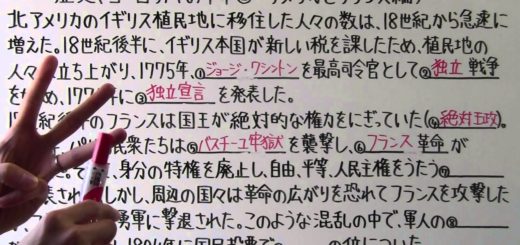 北アメリカのイギリス植民地に移住した人々の数は、18世紀から急速に
増えた。18世紀後半に、イギリス本国が新しい税を課したため、植民地の
人々 立ち上がり、1775年、①ジョージ・ワシントンを最高司令官として②独立戦争
をはじめ、177 年に③独立宣言を発表した。
世紀 のフランスは国王が絶対的な権力をにぎっていた(④絶対王政)。
民衆たちは⑤バスチーユ牢獄を襲撃し、⑥フランス革命が
て、身分の特権を廃止し、自由、平等、人民主権をうたう⑦
された。しかし、周辺の国々は革命の広がりを恐れてフランスを攻撃した
勇軍に撃退された。このような混乱の中で、軍人の⑧
1804年に国民投票で の位についた